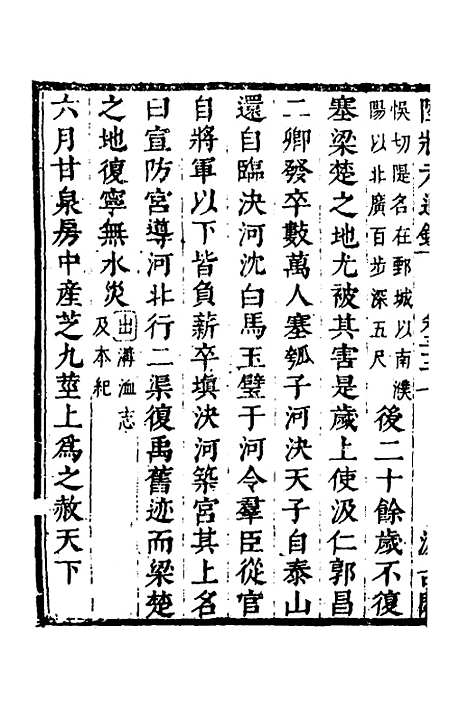 悞切隄名在鄄城以南濮
陽以北廣百步深五尺
後二十餘歲不復
塞梁楚之地尤被其害是歲上使汲仁郭昌
二卿發卒數萬人塞瓠子河決天子自泰山
還自臨決河沈白馬玉璧于河令羣臣從官
自將軍以下皆負薪卒塡決河築宮其上名
曰宣防宮導河北行二渠復禹舊迹而梁楚
之地復寧無水災
出溝洫志
及本紀
六月甘泉房中産芝九莖上爲之赦天下